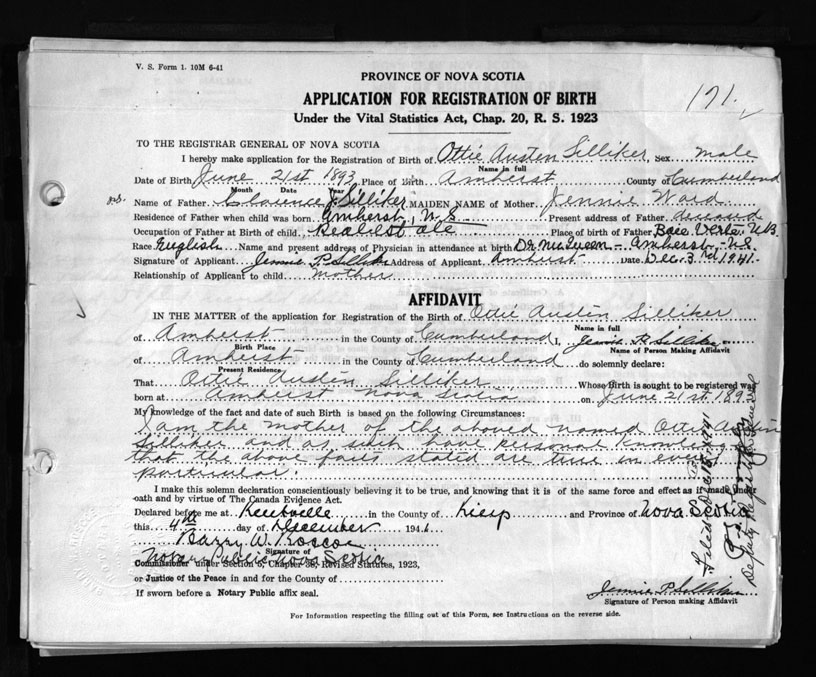 V. S. Form 1. 10M 6-41
PROVINCE OF NOVA SCOTIA
171.
APPLICATION FOR REGISTRATION OF BIRTH
Under the Vital Statistics Act, Chap. 20, R. S. 1923
TO THE REGISTRAR GENERAL OF NOVA SCOTIA
I hereby make application for the Registration of Birth of Ottie Austen Silliker Sex male
Name in full
Date of Birth June 21st 1893 Place of Birth Amherst County of Cumberland
Month Date Year
Name of Father Clarence J. Silliker MAIDEN NAME of Mother Jennie Ward
Residence of Father when child was born Amherst, N.S. Present address of Father deceased
Occupation of Father at Birth of child, Real Estate Place of birth of Father Baie Verte N.B.
Race English Name and present address of Physician in attendance at birth Dr. McQueen - Amherst, N.S.
Signature of Applicant Jennie P. Silliker Address of Applicant Amherst Date Dec. 3rd 1941.
Relationship of Applicant to child mother
AFFIDAVIT
IN THE MATTER of the application for Registration of the Birth of Ottie Austin Silliker
Name in full
of Amherst in the County of Cumberland I, Jennie P. Silliker
Birth Place Name of Person Making Affidavit
of Amherst in the County of Cumberland do solemnly declare:
Present Residence
That Ottie Austen Silliker Whose Birth is sought to be registered was
born at Amherst Nova Scotia on June 21st 189
My knowledge of the fact and date of such Birth is based on the following Circumstances:
I am the mother of the aboved named Ottie Austin
Silliker and as such have personal knowledge
that the above facts stated are true in every
particular.
I make this solemn declaration conscientiously believing it to be true, and knowing that it is of the same force and effect as if made under
oath and by virtue of The Canada Evidence Act.
Declared before me at Kentville in the County of Kings and Province of Nova Scotia
this 4th day of December 1941
Barry W. Roscoe
Signature of
Notary Public Nova Scotia
Commissioner under Section 5, Chapter 38, Revised Statutes, 1923,
or Justices of the Peace in and for the County of
If sworn before a Notary Public affix seal.
Jennie P. Silliker
Signature of Person making Affidavit
For Information respecting the filling out of this Form, see Instructions on the reverse side.
Filed Dec 18 1941
Deputy Registrar General